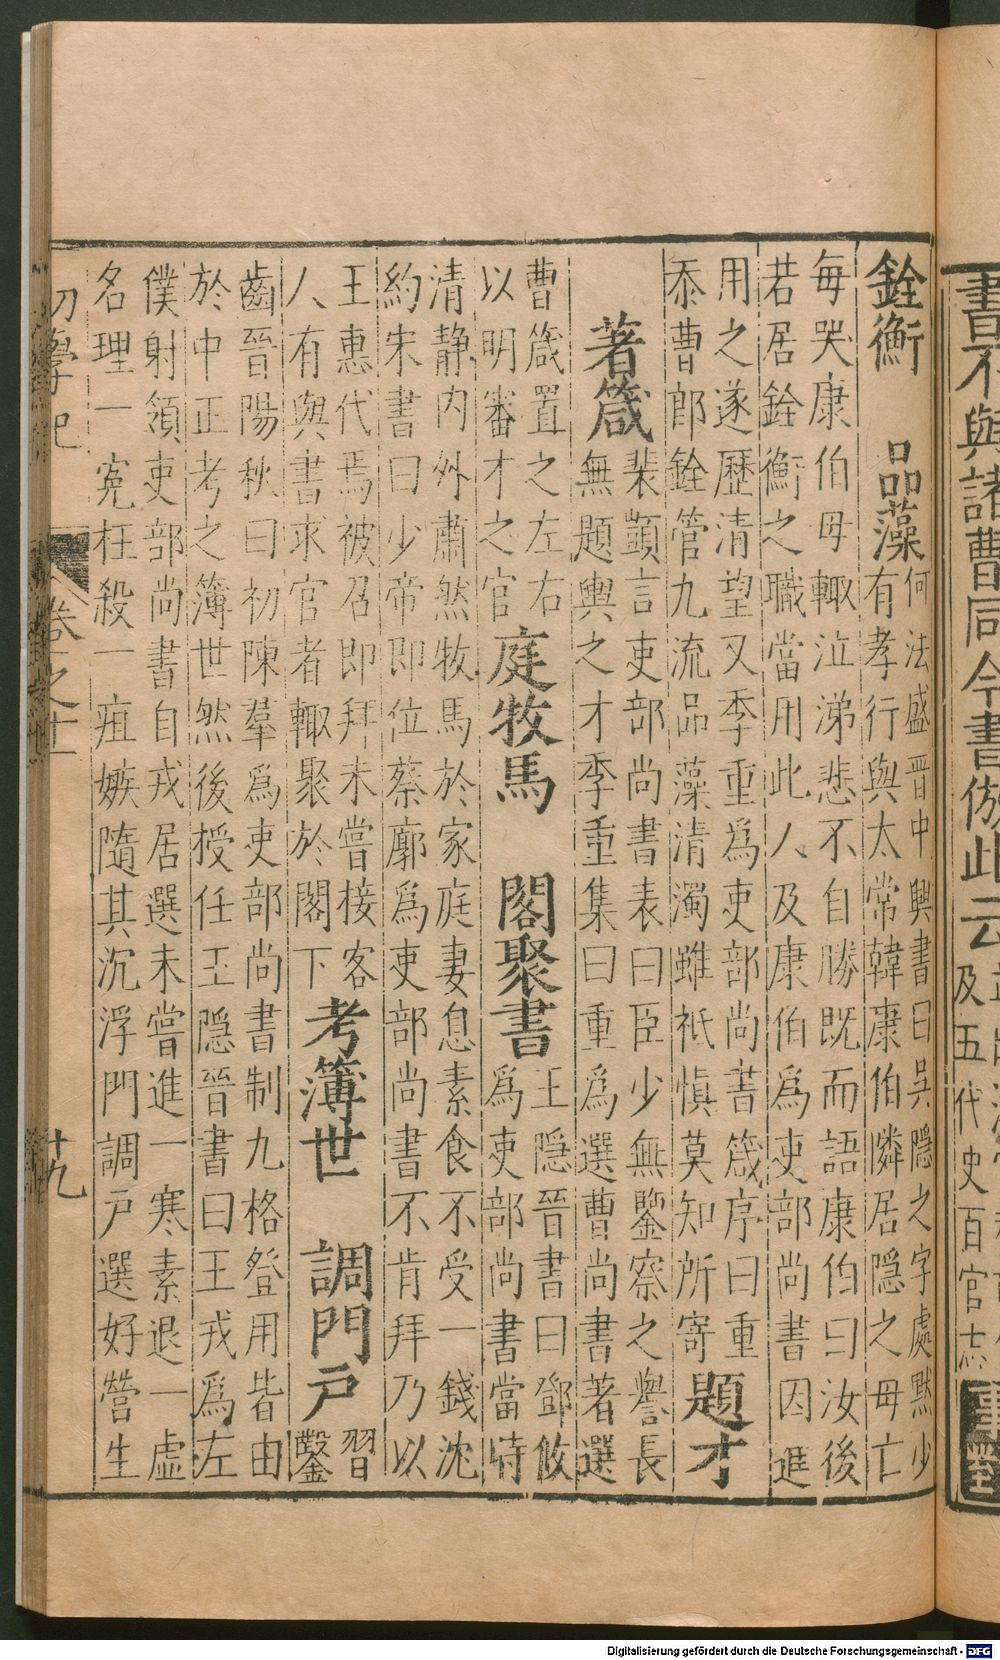 書不與諸曹同今書倣此云
及五代史百官志
銓衡 品藻
何法盛晉中興書曰吳隱之字處黙少
有孝行與太常韓康伯隣居隱之母亡
每哭康伯母輙泣涕悲不自勝既而語康伯曰汝後
若居銓衡之職當用此人及康伯為吏部尚書因進
用之遂歷清望又季重為吏部尚書箴序曰重
忝曹郎銓管九流品藻清濁雖祇慎莫知所寄
題才
著箴
裴顗言吏部尚書表曰臣少無鑒察之譽長
無題輿之才季重集曰重為選曹尚書著選
曹箴置之左右
以明審才之官
庭牧馬 閣聚書
王隱晉書曰鄧攸
為吏部尚書當時
清静内外肅然牧馬於家庭妻息素食不受一錢沈
約宋書曰少帝即位蔡廓為吏部尚書不肯拜乃以
王惠代焉被召即拜未嘗接客
人有與書求官者輙聚於閣下
考簿世 調門戸
習
鑿
齒晉陽秋曰初陳羣為吏部尚書制九格登用皆由
於中正考之簿世然後授任王隱晉書曰王戎為左
僕射領吏部尚書自戎居選未嘗進一寒素退一虛
名理一寃枉殺一疽嫉隨其沉浮門調戸選好營生
初學記 卷之十一 十九
Digitalisierung gefördert durch die Deutsche Forschungsgemeinschaft - DFG